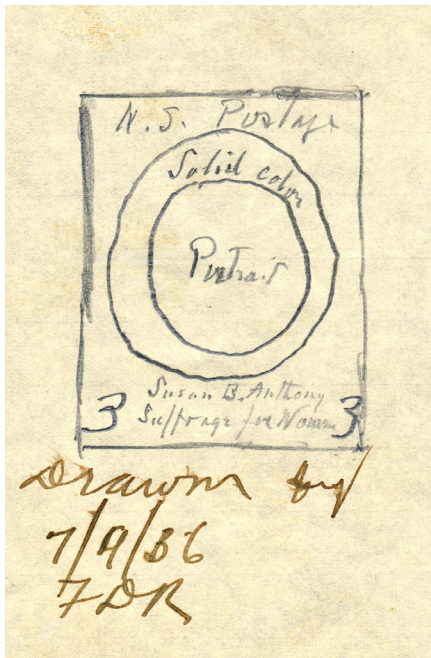 U.S. Postage
Solid color
Portrait
Susan B. Anthony
3 Suffrage for Women 3
Drawn by
7/9/36
FDR